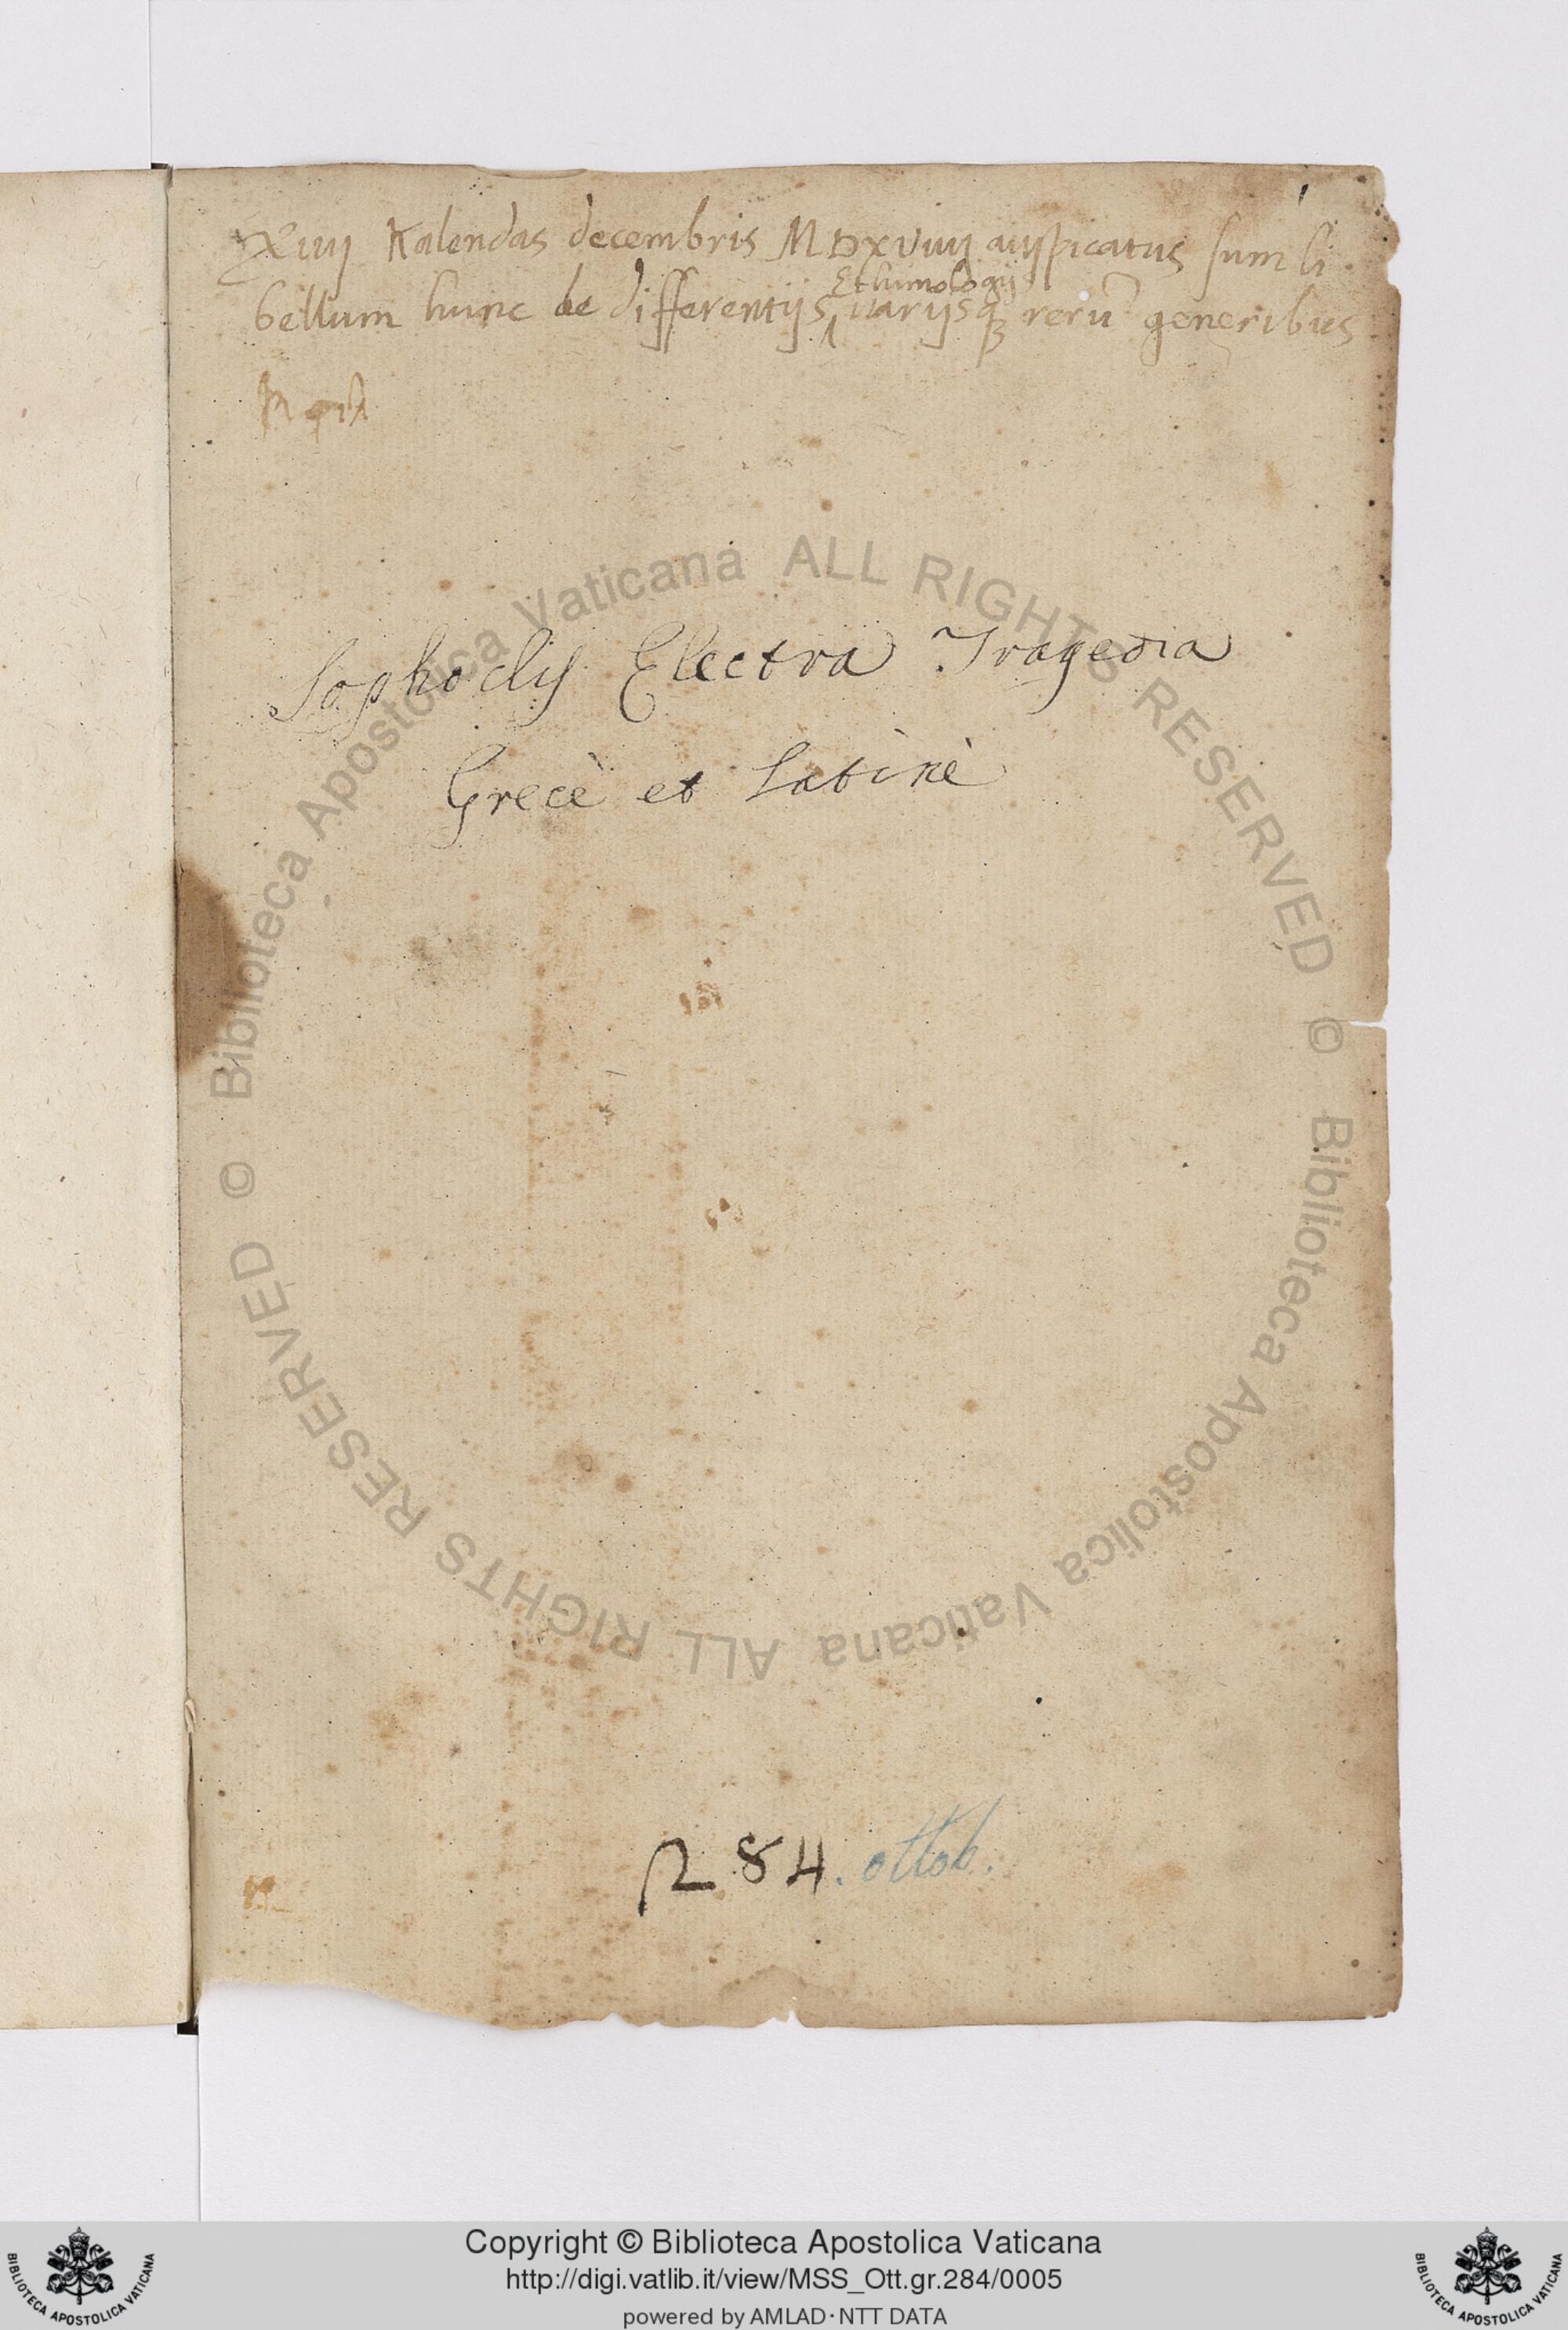 Xiiij Kalendas decembris MDXViiij auspicatus sum li
bellum hunc de differentijs Ethimologijs uarijsqꝫ rerū generibus
Sophoclis Electra Tragedia
Grecè et Latinè
R 284. ottob.
© Biblioteca Apostolica Vaticana ALL RIGHTS RESERVED © Biblioteca Apostolica Vaticana ALL RIGHTS RESERVED
BIBLIOTECA APOSTOLICA VATICANA
Copyright © Biblioteca Apostolica Vaticana
http://digi.vatlib.it/view/MSS_Ott.gr.284/0005
powered by AMLAD·NTT DATA
BIBLIOTECA APOSTOLICA VATICANA